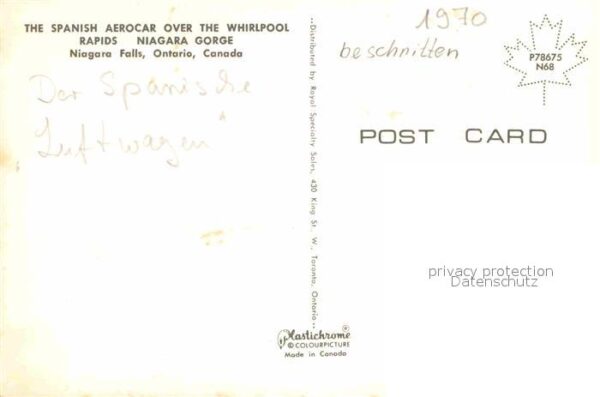 THE SPANISH AEROCAR OVER THE WHIRLPOOL
RAPIDS NIAGARA GORGE
Niagara Falls, Ontario, Canada
Der Spanische
„Luftwagen"
--Distributed by Royal Specialty Sales, 430 King St. W., Toronto, Ontario--
Plastichrome®
© COLOURPICTURE
Made in Canada
1970
beschnitten
P78675
N68
POST CARD
privacy protection
Datenschutz